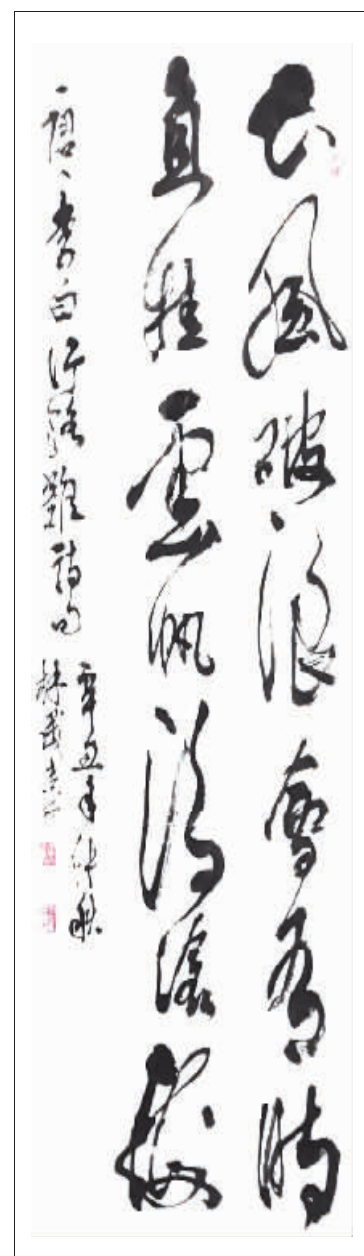 長風破浪會有時
直挂雲帆濟滄海
唐李白行路難詩句
辛丑年仲秋